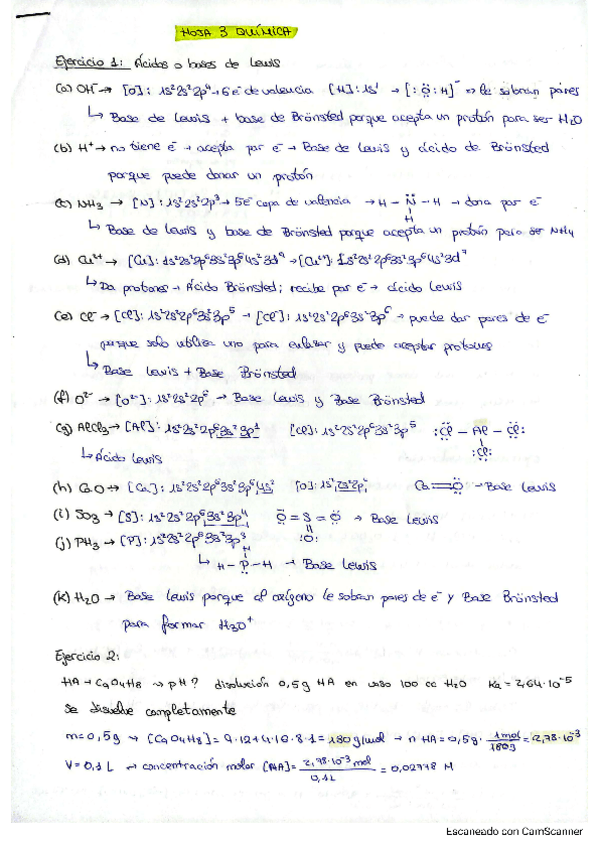 HOJA 3 QUÍMICA
Ejercicio 1: Ácidos o bases de Lewis
(a) OH⁻→ [O]: 1s²2s²2p⁴→6e⁻ de valencia [H]: 1s¹ → [:Ö:H]⁻ → le sobran pares
↳ Base de Lewis + base de Brönsted porque acepta un protón para ser H₂O
(b) H⁺→ no tiene e⁻ → acepta par e⁻ → Base de Lewis y ácido de Brönsted
porque puede donar un protón
(c) NH₃ → [N]: 1s²2s²2p³→ 5e⁻ capa de valencia → H – N̈ – H → dona par e⁻
H
↳ Base de Lewis y base de Brönsted porque acepta un protón para ser NH₄
(d) Cu²⁺ → [Cu]: 1s²2s²2p⁶3s²3p⁶4s²3d⁹ → [Cu²⁺]: 1s²2s²2p⁶3s²3p⁶4s²3d⁷
↳ Da protones → Ácido Brönsted; recibe par e⁻ → ácido Lewis
(e) Cl⁻→ [Cl]: 1s²2s²2p⁶3s²3p⁵ → [Cl⁻]: 1s²2s²2p⁶3s²3p⁶ → puede dar pares de e⁻
porque solo utiliza uno para enlazar y puede aceptar protones
↳ Base Lewis + Base Brönsted
(f) O²⁻ → [O²⁻]: 1s²2s²2p⁶ → Base Lewis y Base Brönsted
(g) AlCl₃→ [Al]: 1s²2s²2p⁶3s²3p¹ [Cl]: 1s²2s²2p⁶3s²3p⁵ :C̈l – Al – C̈l:
:C̈l:
↳ Ácido Lewis
(h) CaO → [Ca]: 1s²2s²2p⁶3s²3p⁶4s² [O]: 1s²2s²2p⁴ Ca=Ö: → Base Lewis
(i) SO₃ → [S]: 1s²2s²2p⁶3s²3p⁴ Ö = S = Ö → Base Lewis
:O:
(j) PH₃ → [P]: 1s²2s²2p⁶3s²3p³
H
↳ H – P̈ – H → Base Lewis
(k) H₂O → Base Lewis porque al oxígeno le sobran pares de e⁻ y Base Brönsted
para formar H₃O⁺
Ejercicio 2:
HA → C₉O₄H₈ → pH? disolución 0,5g HA en vaso 100 cc H₂O Ka = 2,64·10⁻⁵
Se disuelve completamente
m = 0,5g → [C₉O₄H₈] = 9·12+4·16·8·1 = 180 g/mol → n HA = 0,5g · 1mol/180g = 2,78·10⁻³
V = 0,1 L → concentración molar [HA] = 2,78·10⁻³ mol/0,1L = 0,02778 M
Escaneado con CamScanner